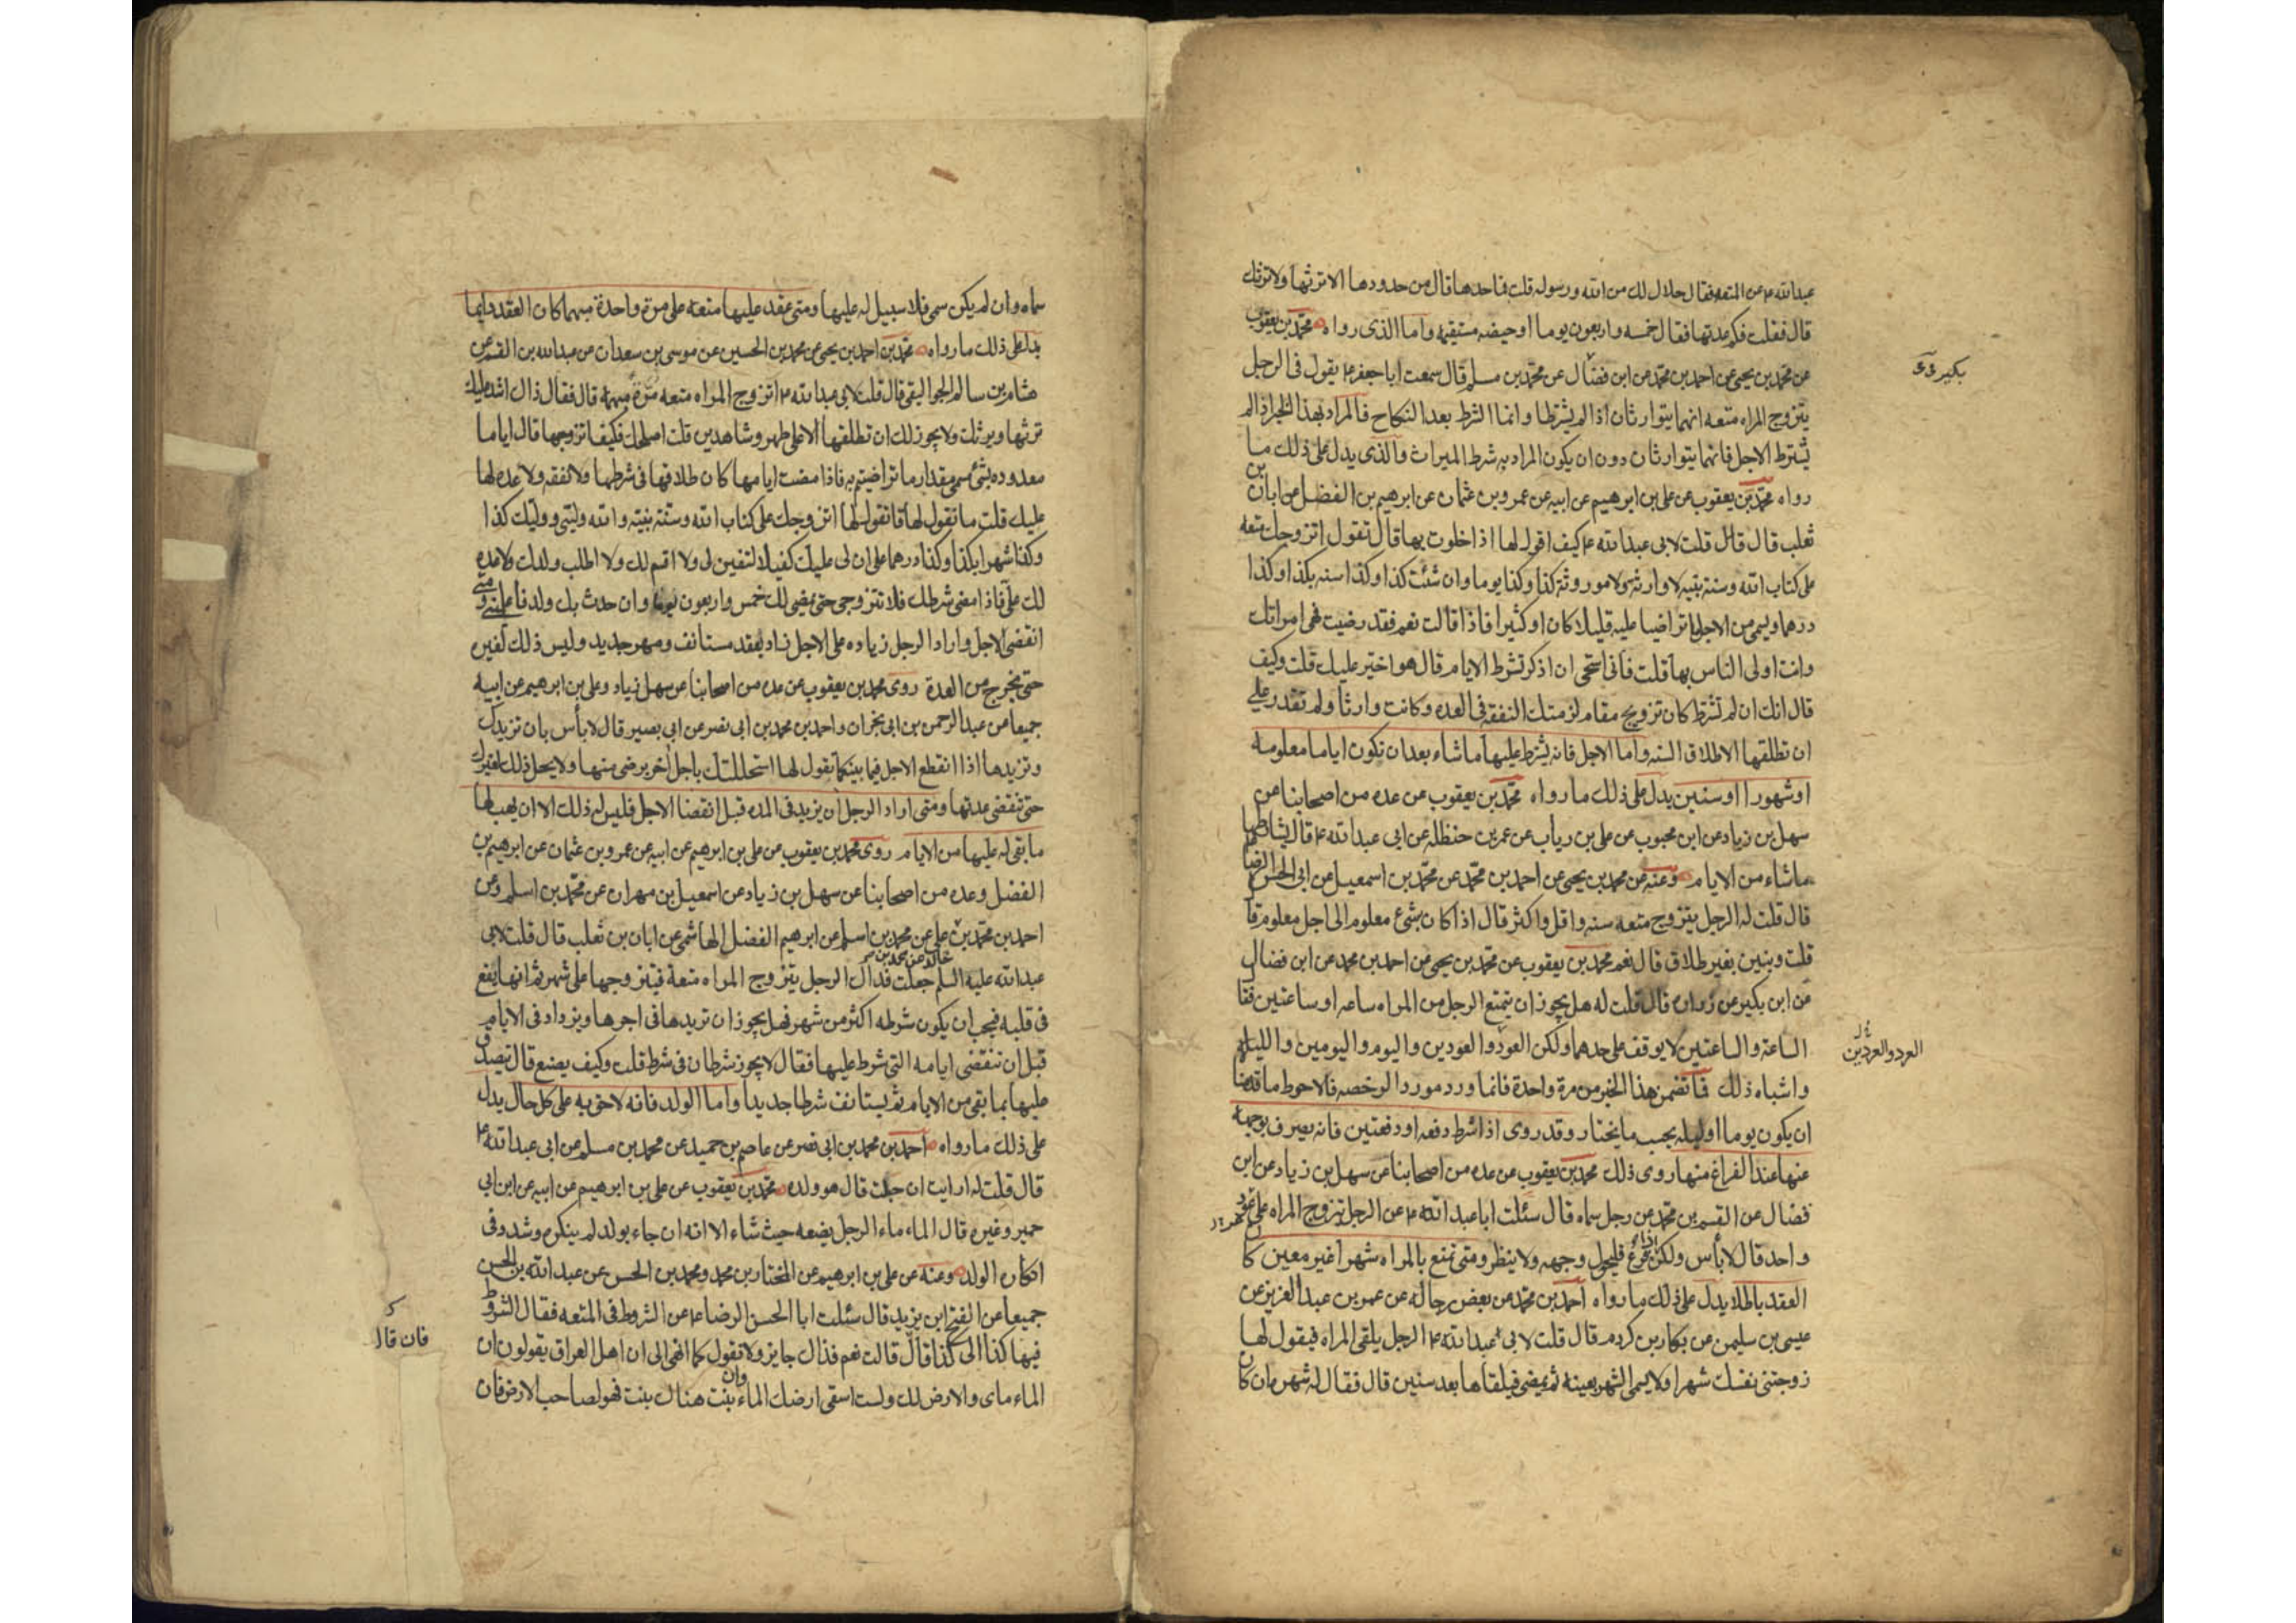 عبدالله ع عن المتعه فقال حلال لك من الله ورسوله قلت فما حدها قال من حدودها الا ترثها ولا ترثك
قال فقلت فكم عدتها فقال خمسه واربعون يوما او حيضه مستقيمه واما الذى رواه محمد بن يعقوب
عن محمد بن يحيى عن احمد بن محمد عن ابن فضال عن محمد بن مسلم قال سمعت ابا جعفر ع يقول فى الرجل
بكير
يتزوج المراه متعه انهما يتوارثان اذا لم يشترطا وانما الشرط بعد النكاح فالمراد بهذا الخبر اذا لم
يشترط الاجل فانهما يتوارثان دون ان يكون المراد به شرط الميراث والذى يدل على ذلك ما
رواه محمد بن يعقوب عن على بن ابرهيم عن ابيه عن عمرو بن عثمان عن ابرهيم بن الفضل عن ابان بن
ثعلب قال قلت لابى عبدالله ع كيف اقول لها اذا خلوت بها قال تقول اتزوجك متعه
على كتاب الله وسنة نبيه لا وارثه ولا موروثه كذا وكذا يوما وان شئت كذا وكذا سنه بكذا وكذا
درهما ويسمى من الاجل ما تراضيا عليه قليلا كان او كثيرا فاذا قالت نعم فقد رضيت فهى امراتك
وانت اولى الناس بها قلت فانى استحى ان اذكر شرط الايام قال هو اختر عليك قلت وكيف
قال انك ان لم تشترط كان تزويج مقام لزمتك النفقه فى العده وكانت وارثا ولم تقدر على
ان تطلقها الا طلاق السنه واما الاجل فانه يشترط عليها ما شاء بعد ان تكون اياما معلومه
او شهورا او سنين يدل على ذلك ما رواه محمد بن يعقوب عن عده من اصحابنا عن
سهل بن زياد عن ابن محبوب عن على بن رياب عن عمر بن حنظله عن ابى عبدالله ع قال يشارطها
ما شاء من الايام وعنه عن محمد بن يحيى عن احمد بن محمد عن محمد بن اسمعيل عن ابى الحسن الرضا
قال قلت له الرجل يتزوج متعه سنه واقل واكثر قال اذا كان بشئ معلوم الى اجل معلوم قا
قلت وتبين بغير طلاق قال نعم محمد بن يعقوب عن محمد بن يحيى عن احمد بن محمد عن ابن فضال
عن ابن بكير عن زراره قال قلت له هل يجوز ان يتمتع الرجل من المراه ساعه او ساعتين فقا
الساعة والساعتين لا يوقف على حدهما ولكن العود والعودين واليوم واليومين والليله
العرد والعردين
واشباه ذلك فما تضمن هذا الخبر من مرة واحدة فانما ورد مورد الرخصه فالاحوط ما قدمنا
ان يكون يوما او ليله بحسب ما يختار وقد روى اذا شرط دفعه او دفعتين فانه يصرف بوجهه
عنها عند الفراغ منها روى ذلك محمد بن يعقوب عن عده من اصحابنا عن سهل بن زياد عن ابن
فضال عن القسم بن محمد عن رجل سماه قال سئلت ابا عبدالله ع عن الرجل يتزوج المراه على عود
واحد قال لا بأس ولكن اذا فرغ فليحول وجهه ولا ينظر ومتى تمتع بالمراه شهرا غير معين كا
العقد باطلا يدل على ذلك ما رواه احمد بن محمد عن بعض رجاله عن عمر بن عبد العزيز عن
عيسى بن سليمن عن بكار بن كردم قال قلت لابى عبدالله ع الرجل يلقى المراه فيقول لها
زوجتنى نفسك شهرا ولا يسمى الشهر بعينه ثم يمضى فيلقاها بعد سنين قال فقال له شهره ان كان
سماه وان لم يكن سمى فلا سبيل له عليها ومتى عقد عليها متعه على مرة واحدة مبهما كان العقد دايما
يدل على ذلك ما رواه محمد بن احمد بن يحيى عن محمد بن الحسين عن موسى بن سعدان عن عبدالله بن القسم عن
هشام بن سالم الجواليقى قال قلت لابى عبدالله ع اتزوج المراه متعه مرة مبهمة قال فقال ذاك اشد عليك
ترثها ويرثك ولا يجوز لك ان تطلقها الا على طهر وشاهدين قلت اصلحك فكيف اتزوجها قال اياما
معدوده بشئ مسمى مقدار ما تراضيتم به فاذا مضت ايامها كان طلاقها فى شرطها ولا نفقه ولا عده لها
عليك قلت ما تقول لها قا تقول لها اتزوجك على كتاب الله وسنة نبيه والله وليى ووليك كذا
وكذا شهرا بكذا وكذا درهما على ان لى عليك كفيلا لتفين لى ولا اقسم لك ولا اطلب ولدك ولا عده
لك على فاذا مضى شرطك فلا تتزوجى حتى يمضى لك خمس واربعون يوما وان حدث بك ولد فاعلمينى ومتى
انقضى الاجل واراد الرجل زياده على الاجل زاد بعقد مستانف ومهر جديد وليس ذلك لغيره
حتى يخرج من العدة روى محمد بن يعقوب عن عده من اصحابنا عن سهل زياد وعلى بن ابرهيم عن ابيه
جميعا عن عبد الرحمن بن ابى نجران واحمد بن محمد بن ابى نصر عن ابى بصير قال لا بأس بان تزيدك
وتزيدها اذا انقطع الاجل فيما بينكما تقول لها استحللتك باجل آخر برضى منها ولا يحل ذلك لغيرك
حتى تنقضى عدتها ومتى اراد الرجل ان يزيد فى المده قبل انقضا الاجل فليس له ذلك الا ان يهب لها
ما بقى له عليها من الايام روى محمد بن يعقوب عن على بن ابرهيم عن ابيه عن عمرو بن عثمان عن ابرهيم بن
الفضل وعده من اصحابنا عن سهل بن زياد عن اسمعيل بن مهران عن محمد بن اسلم وعن
احمد بن محمد بن على عن محمد بن اسلم عن ابرهيم الفضل الهاشمى عن ابان بن ثعلب قال قلت لابى
خالد عن محمد بن
عبدالله عليه السلم جعلت فداك الرجل يتزوج المراه متعة فيتزوجها على شهر ثم انها يقع
فى قلبه فيحب ان يكون شرطه اكثر من شهر فهل يجوز ان تزيدها فى اجرها ويزداد فى الايام
قبل ان تنقضى ايامه التى شرط عليها فقال لا يجوز شرطان فى شرط قلت وكيف يصنع قال تصدق
عليها بما بقى من الايام ثم يستانف شرطا جديدا واما الولد فانه لاحق به على كل حال يدل
على ذلك ما رواه احمد بن محمد بن ابى نصر عن عاصم بن حميد عن محمد بن مسلم عن ابى عبدالله ع
قال قلت له ارايت ان حبلت قال هو ولده محمد بن يعقوب عن على بن ابرهيم عن ابيه عن ابن ابى
عمير وغيره قال الماء ماء الرجل يضعه حيث شاء الا انه ان جاء بولد لم ينكره وشدد فى
انكار الولد وعنه عن على بن ابرهيم عن المختار بن محمد ومحمد بن الحسن عن عبدالله بن الحسن
جميعا عن الفتح ابن يزيد قال سئلت ابا الحسن الرضا ع عن الشروط فى المتعه فقال الشرط
فيها كذا الى كذا قال قالت نعم فذاك جايز ولا تقول كما انهى الى ان اهل العراق يقولون ان
فان قال
الماء ماى والارض لك ولست اسقى ارضك الماء وان نبت هناك نبت فهو لصاحب الارض فان